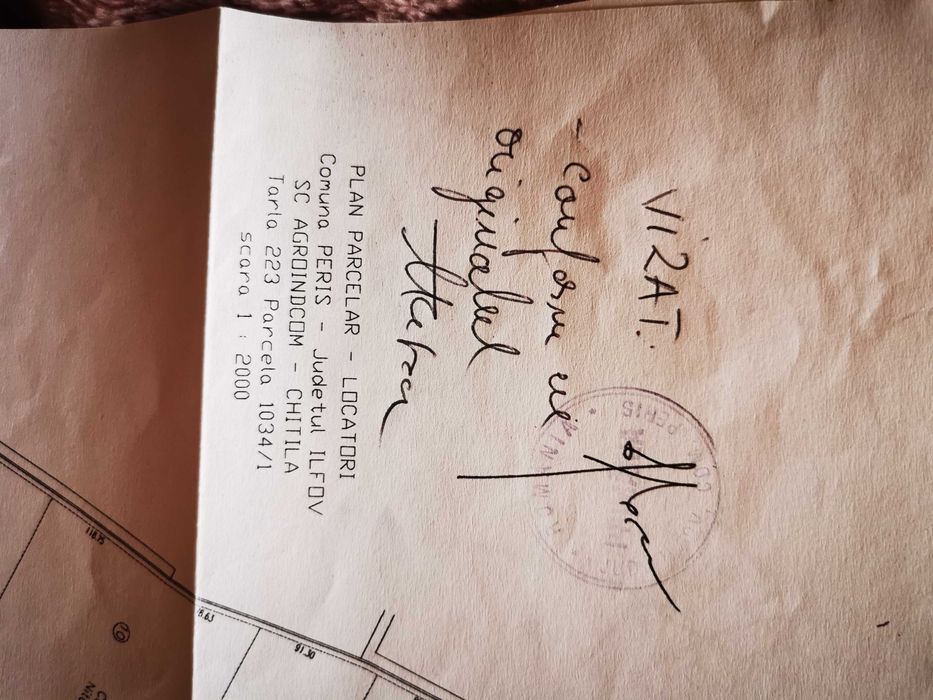 VIZAT:
- Conform cu
originalul
PERIS
PLAN PARCELAR - LOCATORI
Comuna PERIS - Judetul ILFOV
SC AGROINDCOM - CHITILA
Tarla 223 Parcela 1034/1
scara 1 : 2000
118.75
91.50
10